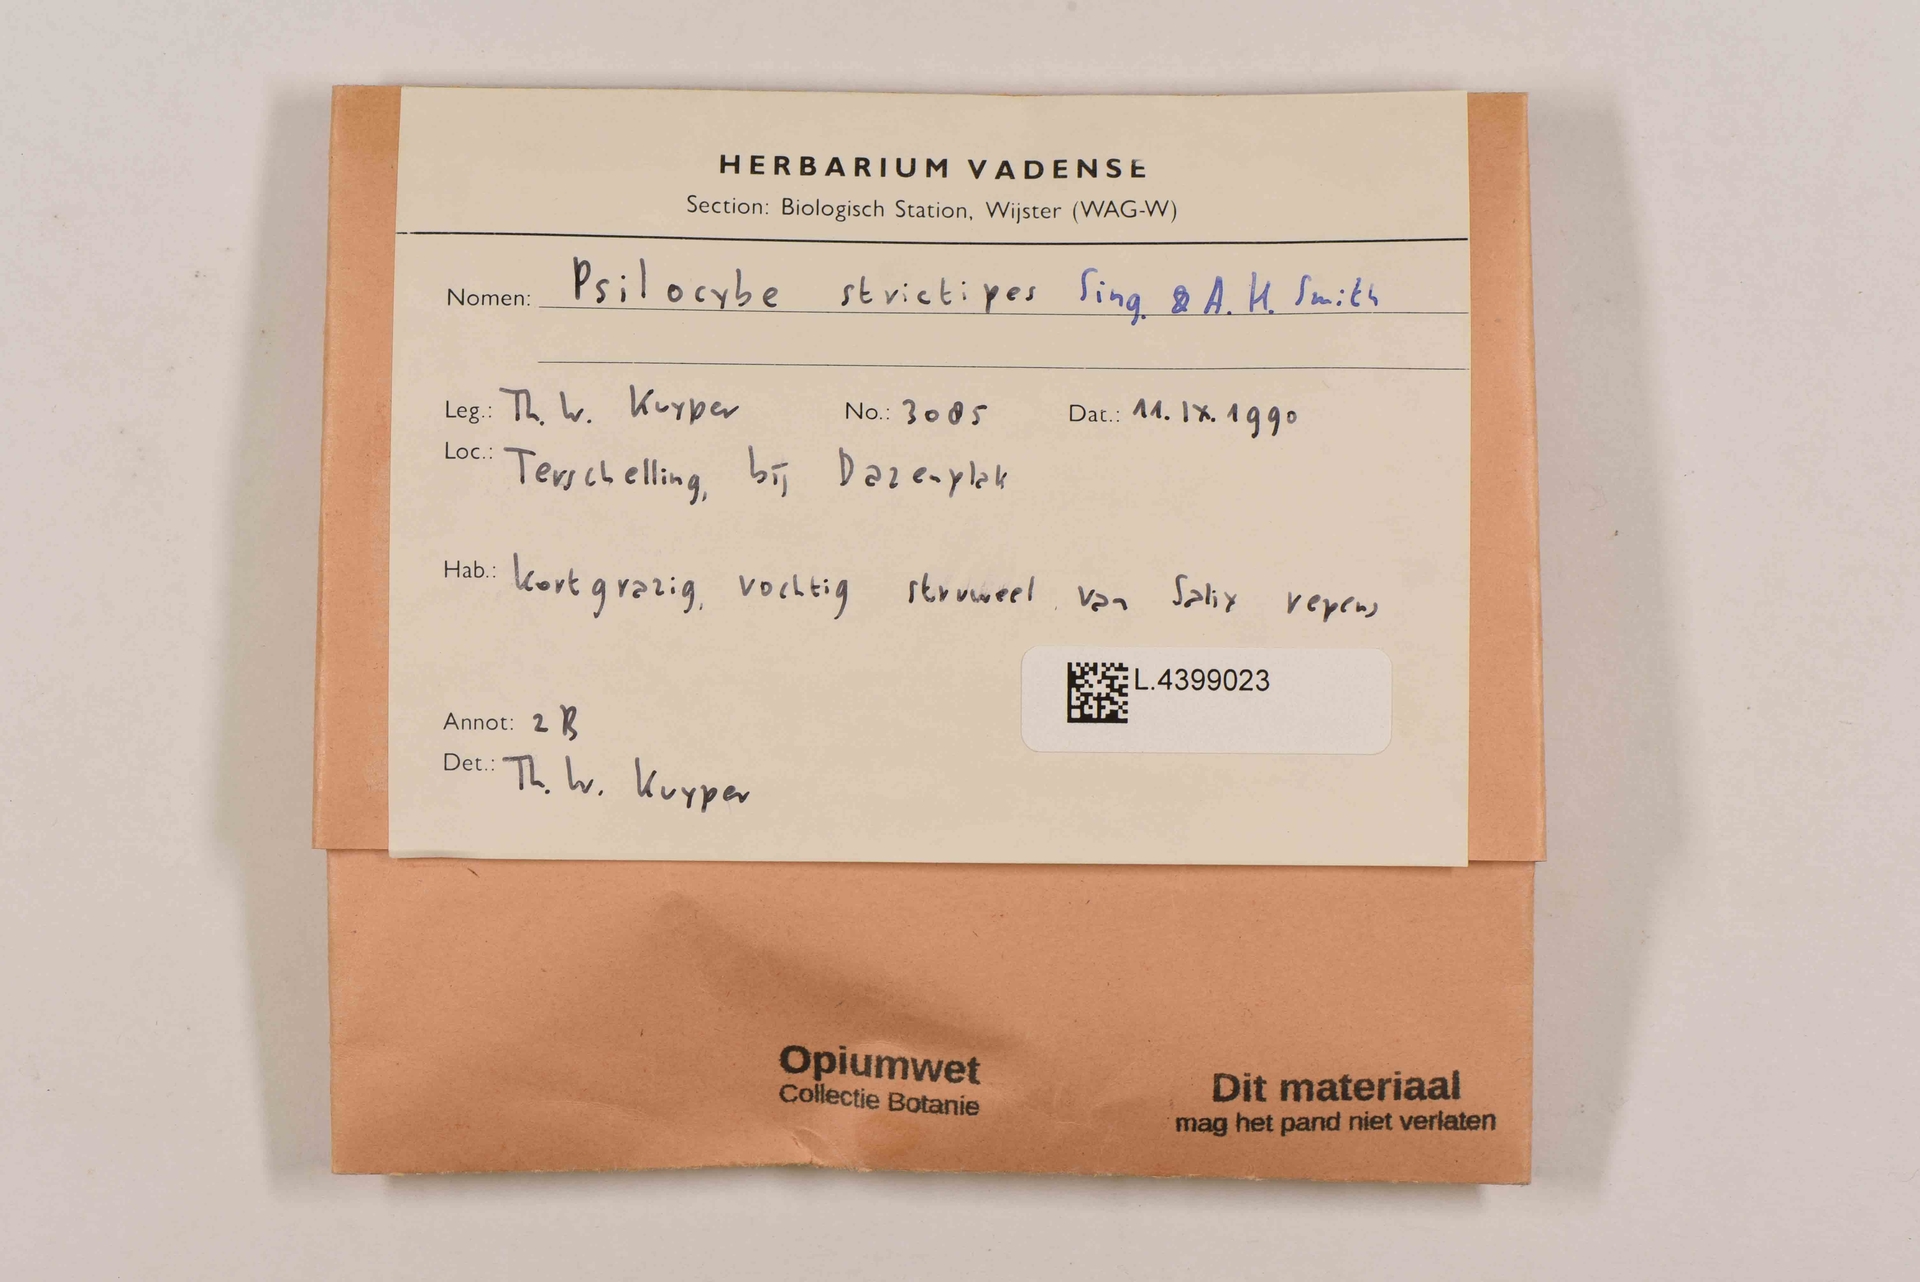 HERBARIUM VADENSE
Section: Biologisch Station, Wijster (WAG-W)
Nomen: Psilocybe strictipes Sing. & A. H. Smith
Leg.: Th. W. Kuyper No.: 3085 Dat.: 11.IX.1990
Loc.: Terschelling, bij Dazenplak
Hab.: kort grazig, vochtig struweel van Salix repens
L.4399023
Annot: 2 B
Det.: Th. W. Kuyper
Opiumwet
Collectie Botanie
Dit materiaal
mag het pand niet verlaten